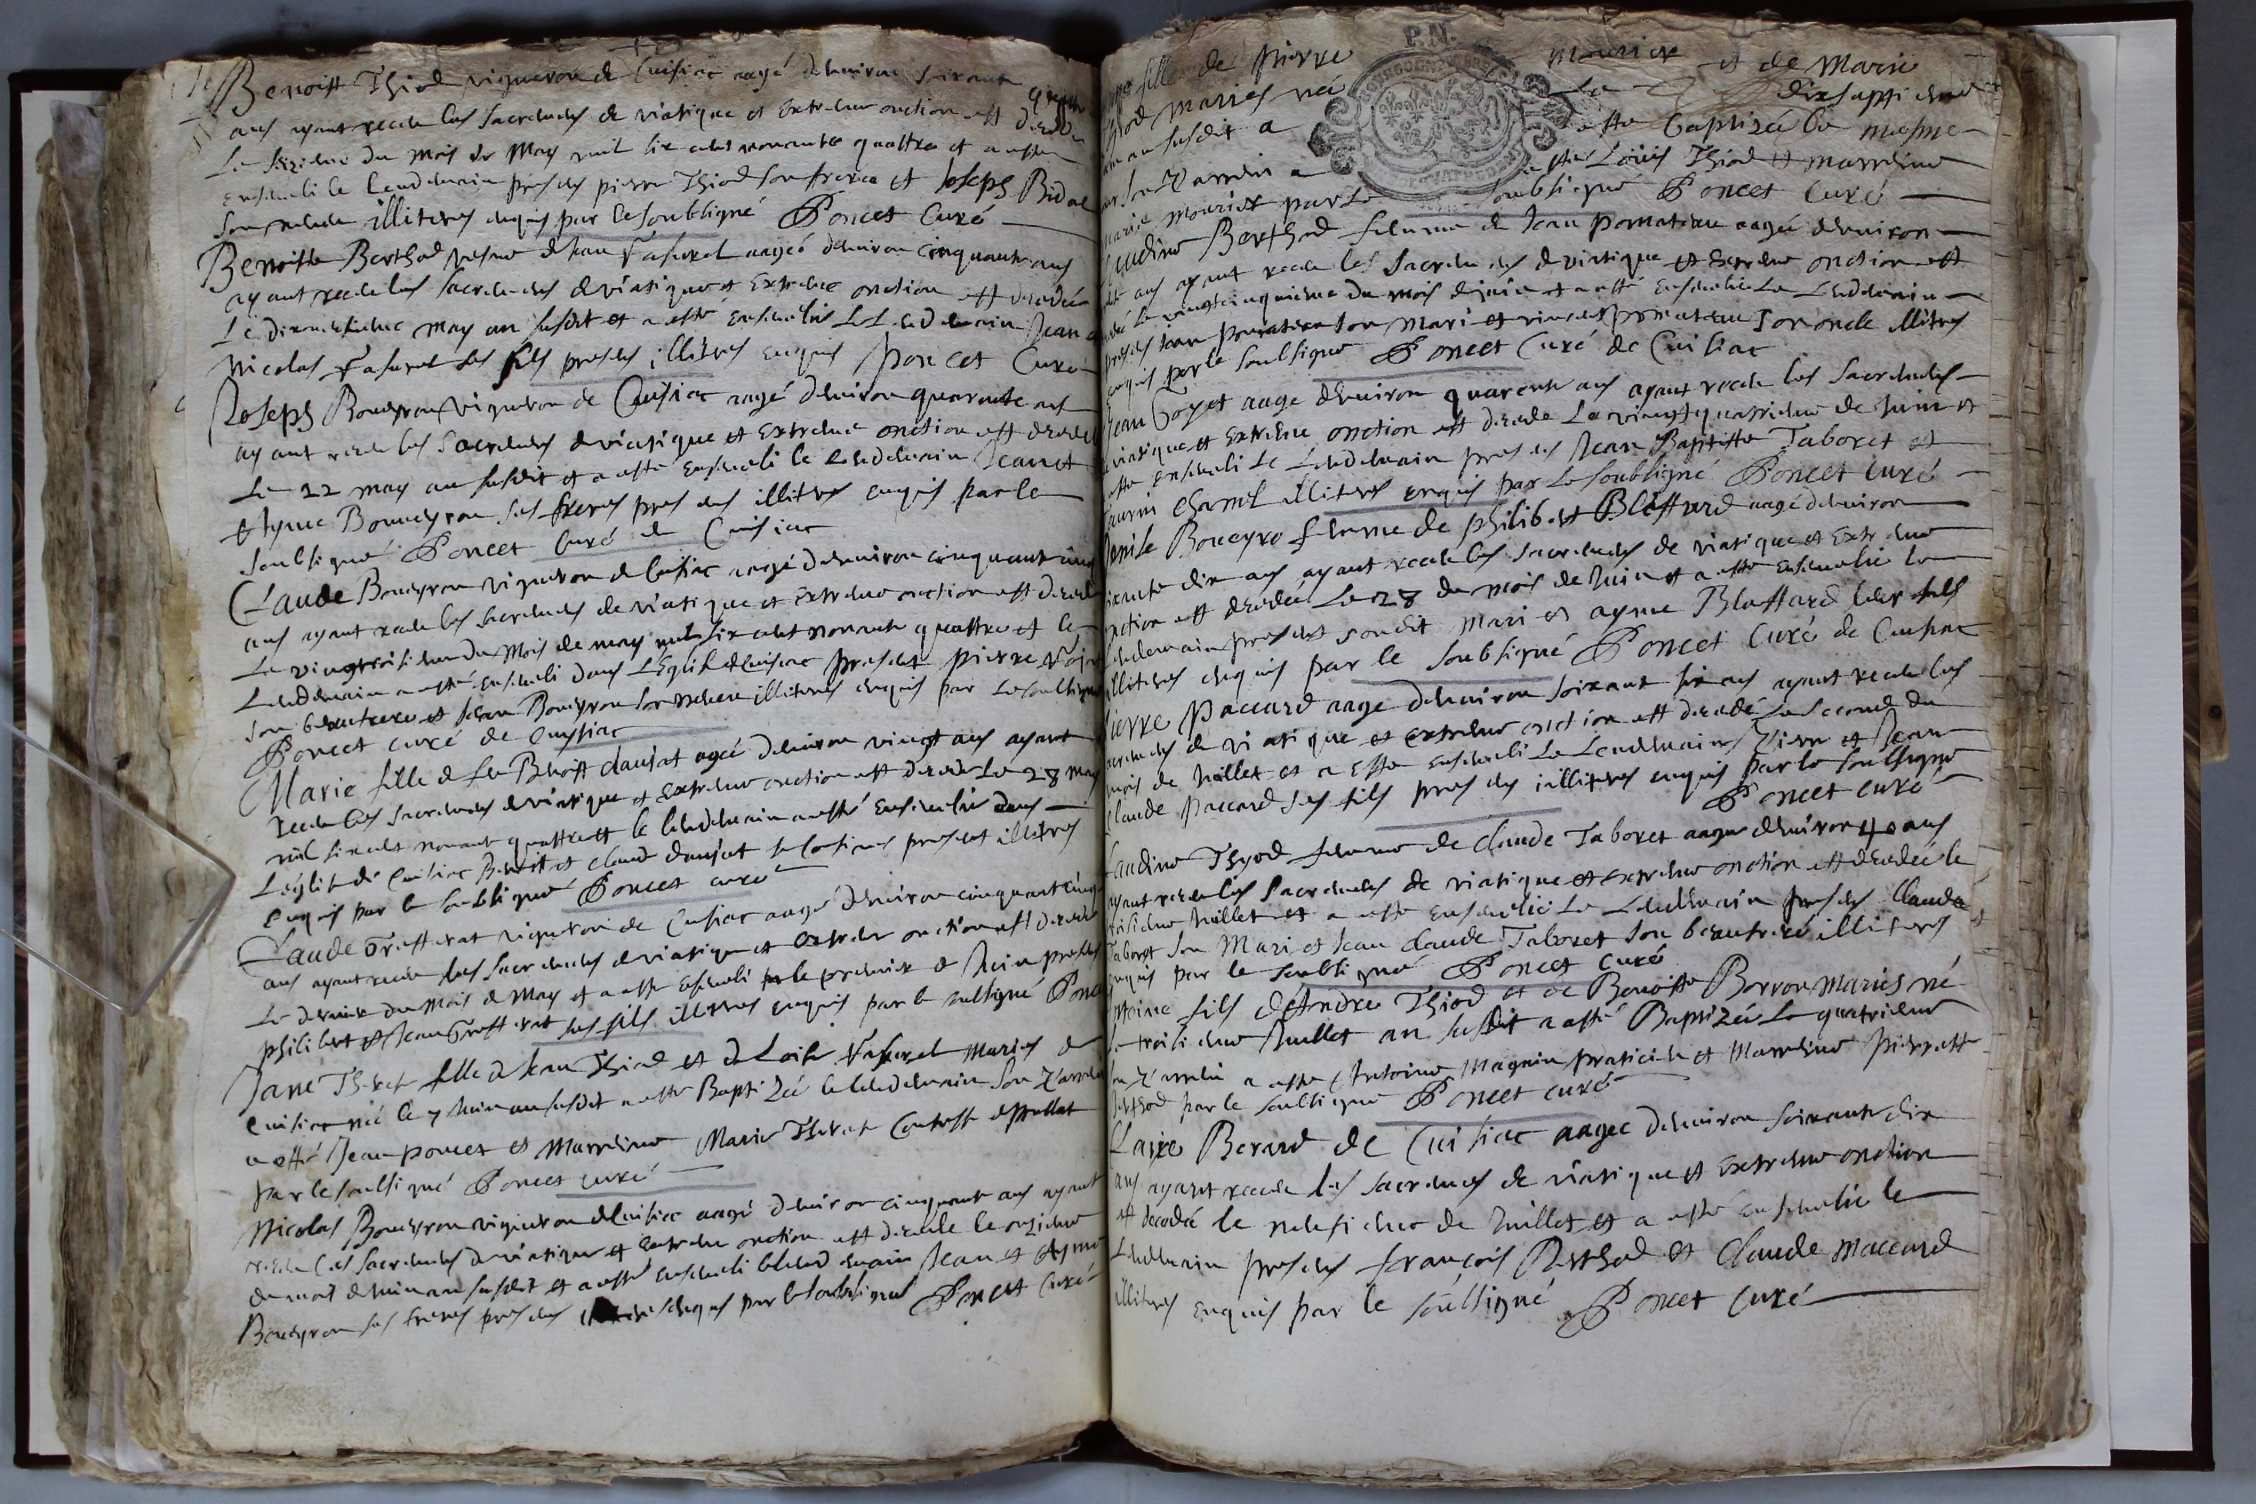 Benoist Thiod vigneron de Cuisiac aagé denviron soixante quattre
ans ayant receu les sacremens de viatique et extreme onction est decedé
Le seizieme du mois de May mil six cent nonante quattre et a esté
enseveli le lendemain presens pierre Thiod son frere et Joseph Bidal
son neveu illiteres enquis par le soubsigné Poncet Curé
Benoiste Berthod vefve de Jean Vafurel aagée denviron cinquante ans
ayant receu les sacremens de viatique et extreme onction est decedée
Le dixneufvieme may an susdit et a esté ensevelie le lendemain Jean et
Nicolas Vafurel ses fils presens illiteres enquis Poncet Curé
Joseph Boueyron vigneron de Cuisiac aagé denviron quarante ans
ayant receu les sacremens de viatique et extreme onction est decedé
Le 22 may an susdit et a esté enseveli le lendemain Jean et
Ayme Bouueyron ses freres presens illiteres enquis par le
soubsigné Poncet Curé de Cuisiac
Claude Boueyron vigneron de Cuisiac aagé denviron cinquante cinq
ans ayant receu les sacremens de viatique et extreme onction est decedé
Le vingtroisieme du mois de may mil six cent nonante quattre et le
Lendemain a esté enseveli dans L'Eglise de Cuisiac presens pierre
son beaufrere et Jean Boueyron son neveu illiteres enquis par le soubsigné
Poncet curé de Cuysiac
Marie fille de feu Benoist dausat agée denviron vingt ans ayant
receu les sacremens de viatique et extreme onction est decedée Le 28 may
mil six cent nonant quattre et le lendemain a esté ensevelie dans
L'eglise de Cuisiac Benoist et claude dausat presens illiteres
enquis par le soubsigné Poncet curé
Claude Greffetat vigneron de Cuisiac aagé denviron cinquante cinq
ans ayant receu les sacremens de viatique et extreme onction est decedé
Le dernier du mois de May et a esté enseveli le premier de Juin presens
philibert et Jean Greffetat ses fils illiteres enquis par le soubsigné Poncet
Jane Theret fille de Jean Thiod et de Loise Vafurel Mariés de
Cuisiac née le 7 Juin an susdit a esté Baptizée le lendemain son Parrein
a esté Jean Poncet et Marreine Marie
par le soubsigné Poncet curé
Nicolas Boueyron vigneron de Cuisiac aagé denviron cinquante ans ayant
receu les sacremens de viatique et extreme onction est decedé le onzieme
du mois de Juin an susdit et a esté enseveli le lendemain Jean et Ayme
Boueyron ses freres presens illiteres enquis par le soubsigné Poncet Curé
fille de Pierre Mourier et de Marie
Thiod mariés née Le dixseptieme
Juin an susdit a esté baptizée le mesme
jour son Parrein a esté Louis Thiod et marreine
Marie Mourier par le soubsigné Poncet Curé
Claudine Berthod femme de Jean Pomatieu aagée denviron
ans ayant receu les sacremens de viatique et extreme onction est
decedée le vingtcinquieme du mois de juin et a esté ensevelie le lendemain
presens Jean Pomatieu son mari et vincent Pomatieu son oncle illiteres
enquis par le soubsigné Poncet Curé de Cuisiac
Jean Goyet aagé denviron quarente ans ayant receu les sacremens
de viatique et extreme onction est decedé Le vingtquatrieme de Juin et
a esté enseveli le lendemain presens Jean Baptiste Taboret et
illiteres enquis par le soubsigné Poncet curé
Denise Boueyro femme de philibert Blaffard aagée denviron
soixante dix ans ayant receu les sacremens de viatique et extreme
onction est decedée Le 28 du mois de Juin et a esté ensevelie le
lendemain presens sondit mari et ayme Blaffard leur fils
illiteres enquis par le soubsigné Poncet Curé de Cuisiac
Pierre Paccard aagé denviron soixant six ans ayant receu les
sacremens de viatique et extreme onction est decedé Le second du
mois de Juillet et a esté enseveli le lendemain Pierre et Jean
Claude Paccard ses fils presens illiteres enquis par le soubsigné
Poncet curé
Claudine Thyod femme de claude Taboret aagée denviron 40 ans
ayant receu les sacremens de viatique et extreme onction est decedée le
troisieme Juillet et a esté ensevelie le lendemain presens Claude
Taboret son Mari et Jean claude Taboret son beaufrere illiteres
enquis par le soubsigné Poncet curé
Antoine fils de Andre Thiod et de Benoiste Borron Mariés né
Le troisieme Juillet an susdit a esté Baptizé Le quatrieme
son Parrein a esté Antoine Magnin praticien et Marreine Pierrette
Berthod par le soubsigné Poncet curé
Claire Berard de Cuisiac aagée denviron soixante dix
ans ayant receu les sacremens de viatique et extreme onction
est decedée le neufieme de Juillet et a esté ensevelie le
lendemain presens françois Berthod et Claude Maccard
illiteres enquis par le soubsigné Poncet curé